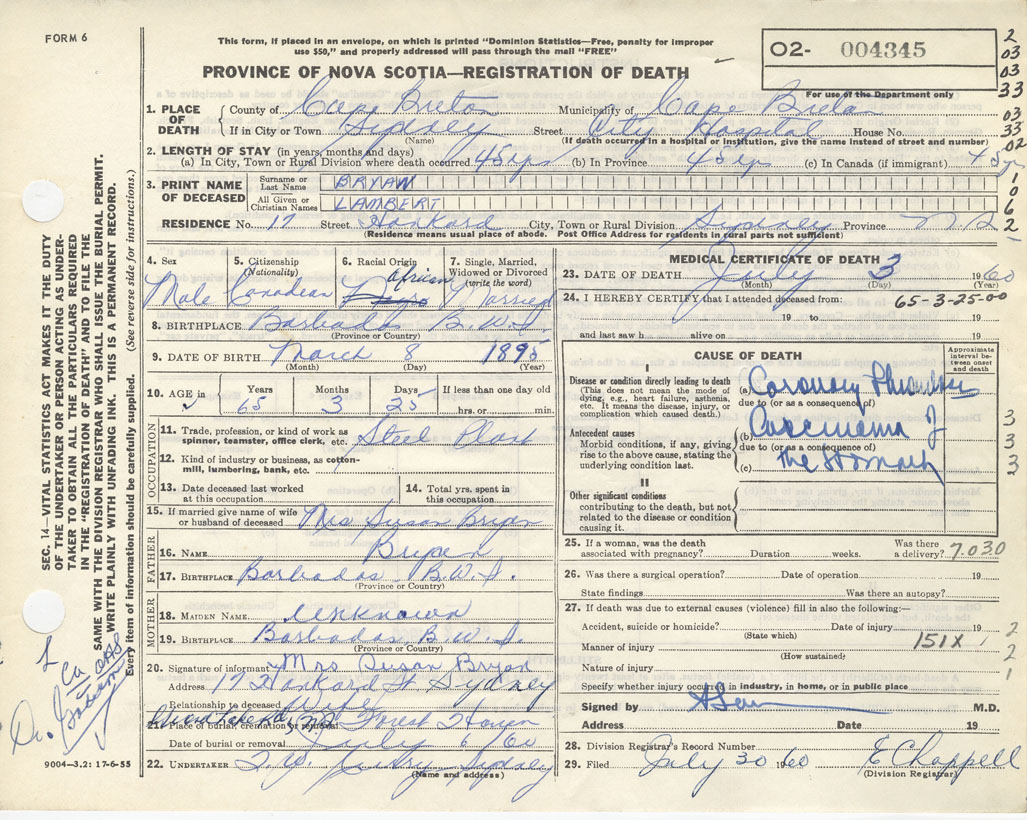 FORM 6
This form, if placed in an envelope, on which is printed "Dominion Statistics—Free, penalty for improper
use $50," and properly addressed will pass through the mail "FREE"
PROVINCE OF NOVA SCOTIA—REGISTRATION OF DEATH
O2- 004345
For use of the Department only
2
03
03
33
03
33
02
1. PLACE OF DEATH
County of Cape Breton Municipality of Cape Breton
If in City or Town Sydney Street City Hospital House No.
(Name) (If death occurred in a hospital or institution, give the name instead of street and number)
2. LENGTH OF STAY (in years, months and days)
(a) In City, Town or Rural Division where death occurred 45 yrs (b) In Province 45 yrs (c) In Canada (if immigrant) 45 yrs
3. PRINT NAME OF DECEASED
Surname or Last Name BRYAN
All Given or Christian Names LAMBERT
1
0
6
2
RESIDENCE No. 17 Street Hankard City, Town or Rural Division Sydney Province N.S.
(Residence means usual place of abode. Post Office Address for residents in rural parts not sufficient)
4. Sex
Male
5. Citizenship
(Nationality)
Canadian
6. Racial Origin
African
7. Single, Married,
Widowed or Divorced
(write the word)
Married
8. BIRTHPLACE Barbados B.W.I.
(Province or Country)
9. DATE OF BIRTH March 8 1895
(Month) (Day) (Year)
10. AGE in
Years Months Days If less than one day old
65 3 25 hrs. or min.
OCCUPATION
11. Trade, profession, or kind of work as
spinner, teamster, office clerk, etc. Steel Plant
12. Kind of industry or business, as cotton-
mill, lumbering, bank, etc.
13. Date deceased last worked
at this occupation
14. Total yrs. spent in
this occupation
15. If married give name of wife
or husband of deceased Mrs Susan Bryan
FATHER
16. NAME Bryan
17. BIRTHPLACE Barbados B.W.I.
(Province or Country)
MOTHER
18. MAIDEN NAME Unknown
19. BIRTHPLACE Barbados B.W.I.
(Province or Country)
20. Signature of informant Mrs Susan Bryan
Address 17 Hankard St Sydney
Relationship to deceased Wife
21. Place of burial, cremation or removal Forest Haven
Date of burial or removal July 6/60
22. UNDERTAKER Sydney
(Name and address)
MEDICAL CERTIFICATE OF DEATH
23. DATE OF DEATH July 3 1960
(Month) (Day) (Year)
24. I HEREBY CERTIFY that I attended deceased from:
65-3-25-00
19 to 19
and last saw h alive on 19
CAUSE OF DEATH
Approximate
interval be-
tween onset
and death
I
Disease or condition directly leading to death
(This does not mean the mode of
dying, e.g., heart failure, asthenia,
etc. It means the disease, injury, or
complication which caused death.)
(a) Coronary Thrombosis
due to (or as a consequence of)
Antecedent causes
Morbid conditions, if any, giving
rise to the above cause, stating the
underlying condition last.
(b) Carcinoma of
due to (or as a consequence of)
(c) the stomach
3
3
3
II
Other significant conditions
contributing to the death, but not
related to the disease or condition
causing it.
25. If a woman, was the death
associated with pregnancy? Duration weeks. Was there
a delivery? 7.030
26. Was there a surgical operation? Date of operation 19
State findings Was there an autopsy?
27. If death was due to external causes (violence) fill in also the following:—
Accident, suicide or homicide? Date of injury 19
(State which)
Manner of injury 151X
(How sustained)
Nature of injury
2
2
1
Specify whether injury occurred in industry, in home, or in public place
Signed by M.D.
Address Date 19
28. Division Registrar's Record Number
29. Filed July 30 1960 E Chappell
(Division Registrar)
SEC. 14—VITAL STATISTICS ACT MAKES IT THE DUTY
OF THE UNDERTAKER OR PERSON ACTING AS UNDER-
TAKER TO OBTAIN ALL THE PARTICULARS REQUIRED
IN THE "REGISTRATION OF DEATH" AND TO FILE THE
SAME WITH THE DIVISION REGISTRAR WHO SHALL ISSUE THE BURIAL PERMIT.
WRITE PLAINLY WITH UNFADING INK. THIS IS A PERMANENT RECORD.
Every item of information should be carefully supplied. (See reverse side for instructions.)
9004—3.2: 17-6-55